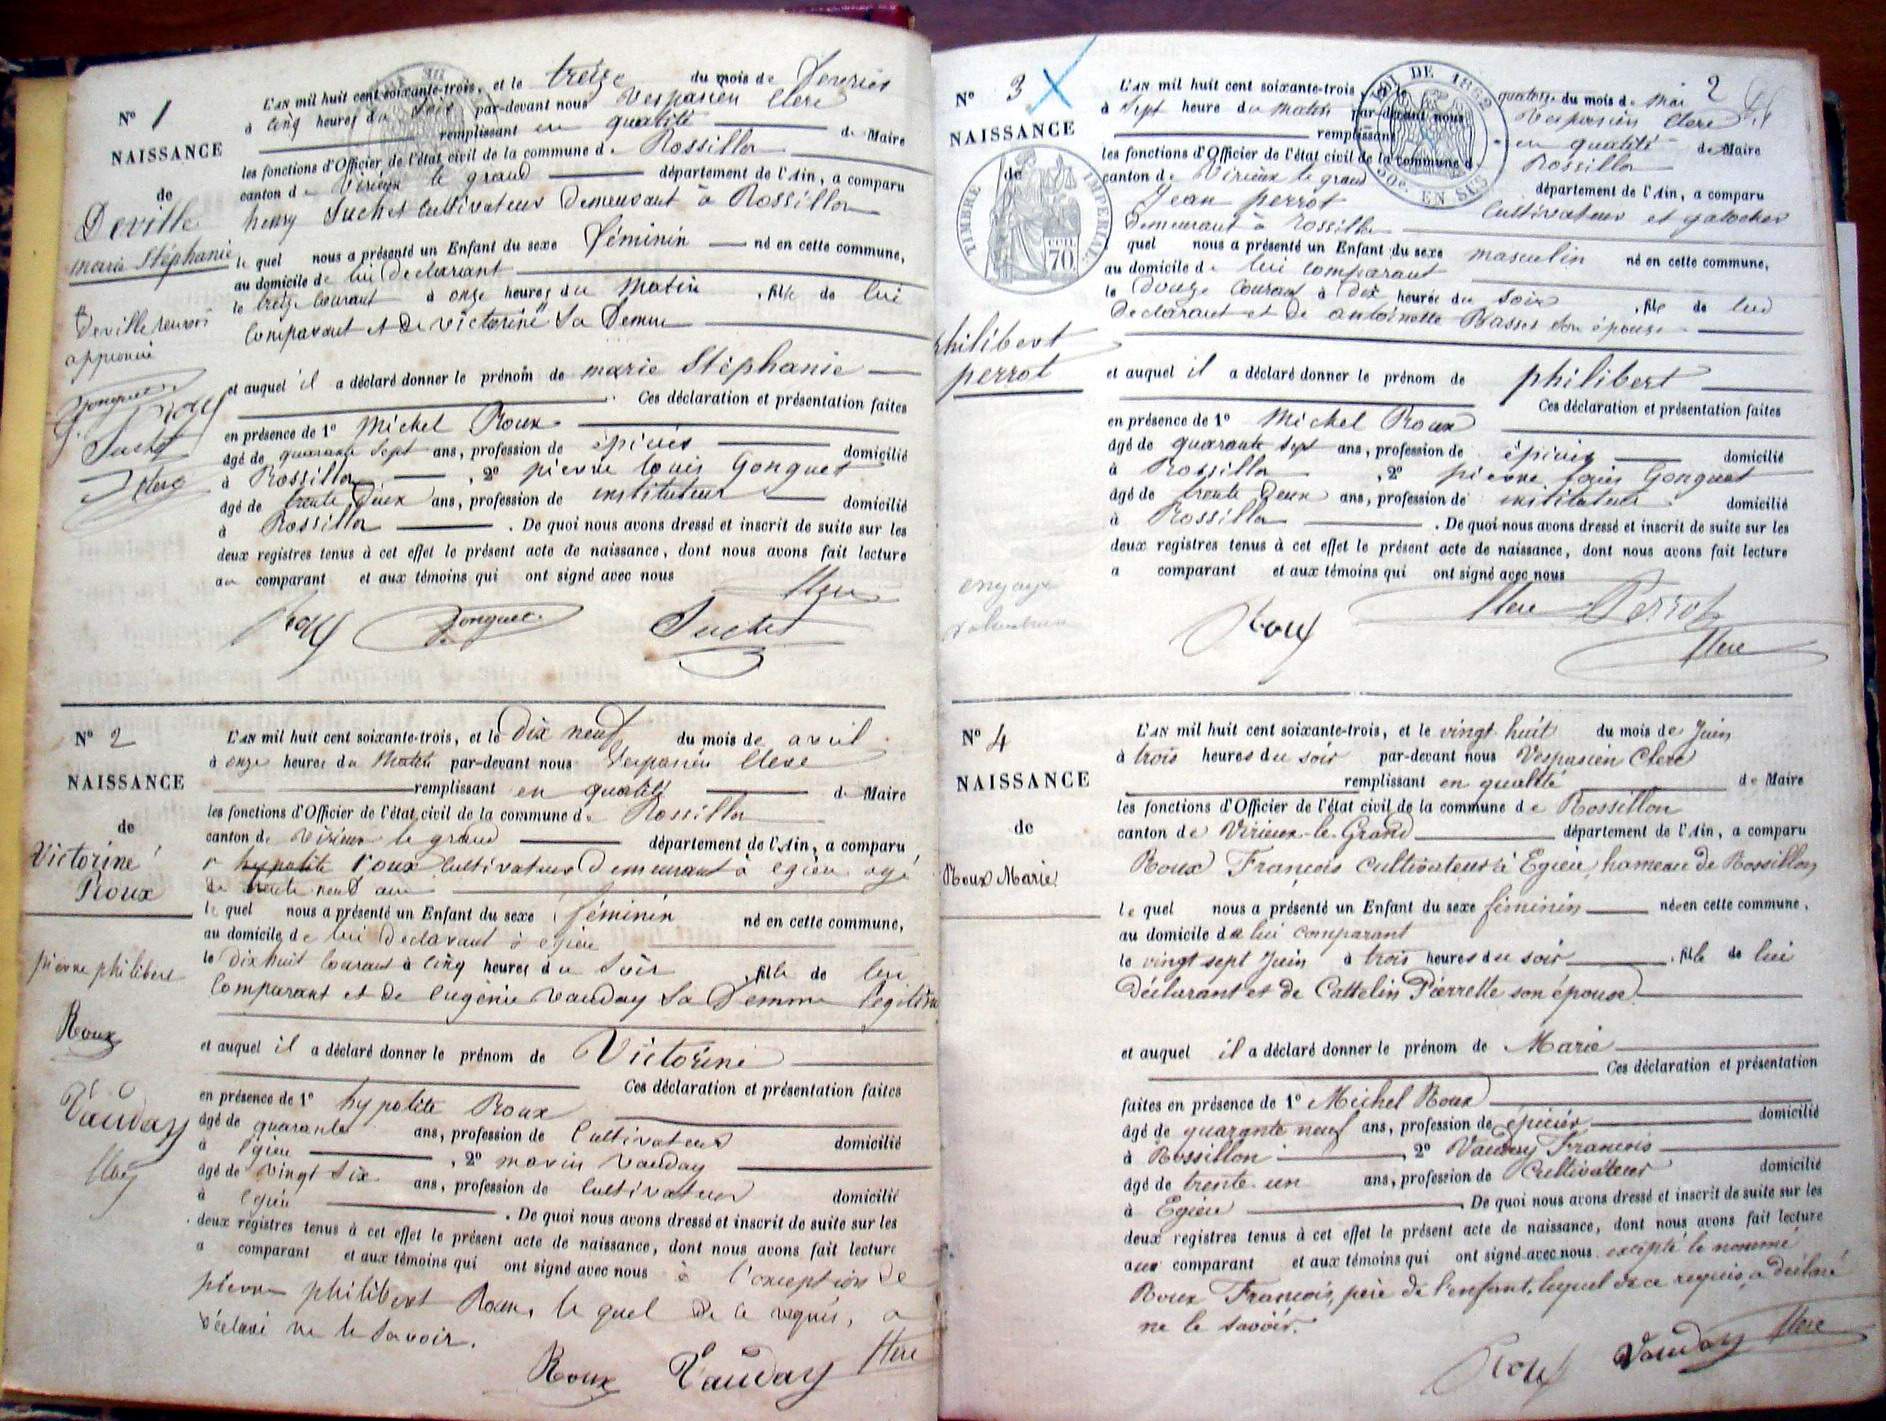 N° 1
NAISSANCE
de
Deville
marie Stéphanie
Deville renvoi
approuvé
Gonguet
Roux
Suchet
Clerc
L'AN mil huit cent soixante-trois, et le treize du mois de Fevrier
à cinq heures du soir par-devant nous Vespasien Clerc
remplissant en qualité de Maire
les fonctions d'Officier de l'état civil de la commune de Rossillon
canton de Virieux le grand département de l'Ain, a comparu
henry Suchet Cultivateur Demeurant à Rossillon
le quel nous a présenté un Enfant du sexe féminin né en cette commune,
au domicile de lui Declarant
le treize Courant à onze heures du Matin, fille de lui
Comparant et de victorine sa Femme
et auquel il a déclaré donner le prénom de marie Stéphanie
Ces déclaration et présentation faites
en présence de 1° Michel Roux
âgé de quarante Sept ans, profession de épicier domicilié
à Rossillon, 2° pierre louis Gonguet
âgé de trente Deux ans, profession de instituteur domicilié
à Rossillon. De quoi nous avons dressé et inscrit de suite sur les
deux registres tenus à cet effet le présent acte de naissance, dont nous avons fait lecture
au comparant et aux témoins qui ont signé avec nous
Clerc
Roux Gonguet Suchet
N° 2
NAISSANCE
de
Victorine
Roux
pierre philibert
Roux
Vauday
Clerc
L'AN mil huit cent soixante-trois, et le Dix neuf du mois de avril
à onze heures du Matin par-devant nous Vespasien Clerc
remplissant en qualité de Maire
les fonctions d'Officier de l'état civil de la commune de Rossillon
canton de Virieux le grand département de l'Ain, a comparu
hypolite roux Cultivateur Demeurant à egieu agé
de trente neuf ans
le quel nous a présenté un Enfant du sexe féminin né en cette commune,
au domicile de lui Declarant à egieu
le Dix huit Courant à Cinq heures du Soir, fille de lui
Comparant et de Eugénie Vauday Sa Femme legitime
et auquel il a déclaré donner le prénom de Victorine
Ces déclaration et présentation faites
en présence de 1° hypolite Roux
âgé de quarante ans, profession de Cultivateur domicilié
à Egieu, 2° marin Vauday
âgé de Vingt Six ans, profession de Cultivateur domicilié
à egieu. De quoi nous avons dressé et inscrit de suite sur les
deux registres tenus à cet effet le présent acte de naissance, dont nous avons fait lecture
a comparant et aux témoins qui ont signé avec nous à l'exception de
pierre philibert Roux, le quel de ce requis, a
déclaré ne le Savoir.
Roux Vauday Clerc
N° 3
NAISSANCE
de
TIMBRE IMPERIAL
70
philibert
perrot
engagé
volontaire
2
LOI DE 1862
EN SUS
L'AN mil huit cent soixante-trois, et le quatorze du mois de Mai
à Sept heure du matin par-devant nous Vespasien Clerc
remplissant en qualité de Maire
les fonctions d'Officier de l'état civil de la commune de Rossillon
canton de Virieux le grand département de l'Ain, a comparu
Jean perrot Cultivateur et galocher
Demeurant à rossillon
quel nous a présenté un Enfant du sexe masculin né en cette commune,
au domicile de lui Comparant
le Douze Courant à Dix heures du Soir, fils de lui
Declarant et de antoinette Basset Son épouse
et auquel il a déclaré donner le prénom de philibert
Ces déclaration et présentation faites
en présence de 1° Michel Roux
âgé de quarante Sept ans, profession de épicier domicilié
à Rossillon, 2° pierre louis Gonguet
âgé de trente Deux ans, profession de instituteur domicilié
à Rossillon. De quoi nous avons dressé et inscrit de suite sur les
deux registres tenus à cet effet le présent acte de naissance, dont nous avons fait lecture
a comparant et aux témoins qui ont signé avec nous
Roux Clerc Perrot
Clerc
N° 4
NAISSANCE
de
Roux Marie
L'AN mil huit cent soixante-trois, et le vingt huit du mois de Juin
à trois heures du soir par-devant nous Vespasien Clerc
remplissant en qualité de Maire
les fonctions d'Officier de l'état civil de la commune de Rossillon
canton de Virieux-le-Grand département de l'Ain, a comparu
Roux François Cultivateur à Egieu, hameau de Rossillon,
le quel nous a présenté un Enfant du sexe féminin né en cette commune,
au domicile de lui comparant
le vingt sept Juin à trois heures du soir, fille de lui
Déclarant et de Cattelin Pierrette son épouse
et auquel il a déclaré donner le prénom de Marie
Ces déclaration et présentation
faites en présence de 1° Michel Roux
âgé de quarante neuf ans, profession de épicier domicilié
à Rossillon, 2° Vauday François
âgé de trente un ans, profession de Cultivateur domicilié
à Egieu. De quoi nous avons dressé et inscrit de suite sur les
deux registres tenus à cet effet le présent acte de naissance, dont nous avons fait lecture
aux comparant et aux témoins qui ont signé avec nous excepté le nommé
Roux François, père de l'enfant, lequel de ce requis, a déclaré
ne le savoir.
Roux Vauday Clerc